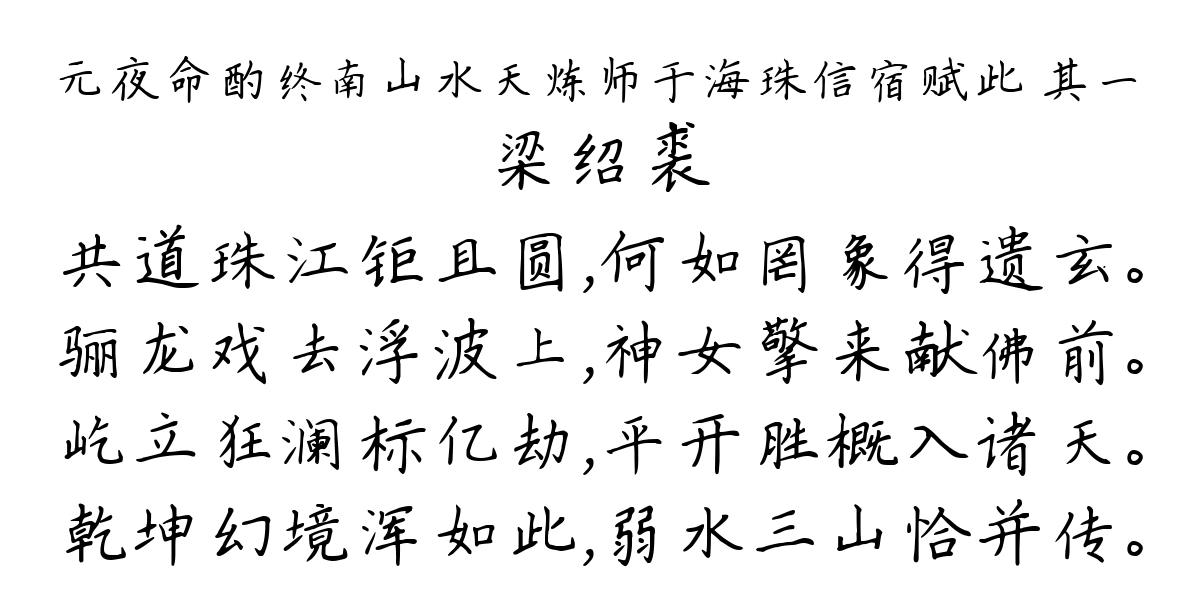 元夜命酌终南山水天炼师于海珠信宿赋此 其一
梁绍裘
共道珠江钜且圆,何如罔象得遗玄。
骊龙戏去浮波上,神女擎来献佛前。
屹立狂澜标亿劫,平开胜概入诸天。
乾坤幻境浑如此,弱水三山恰并传。